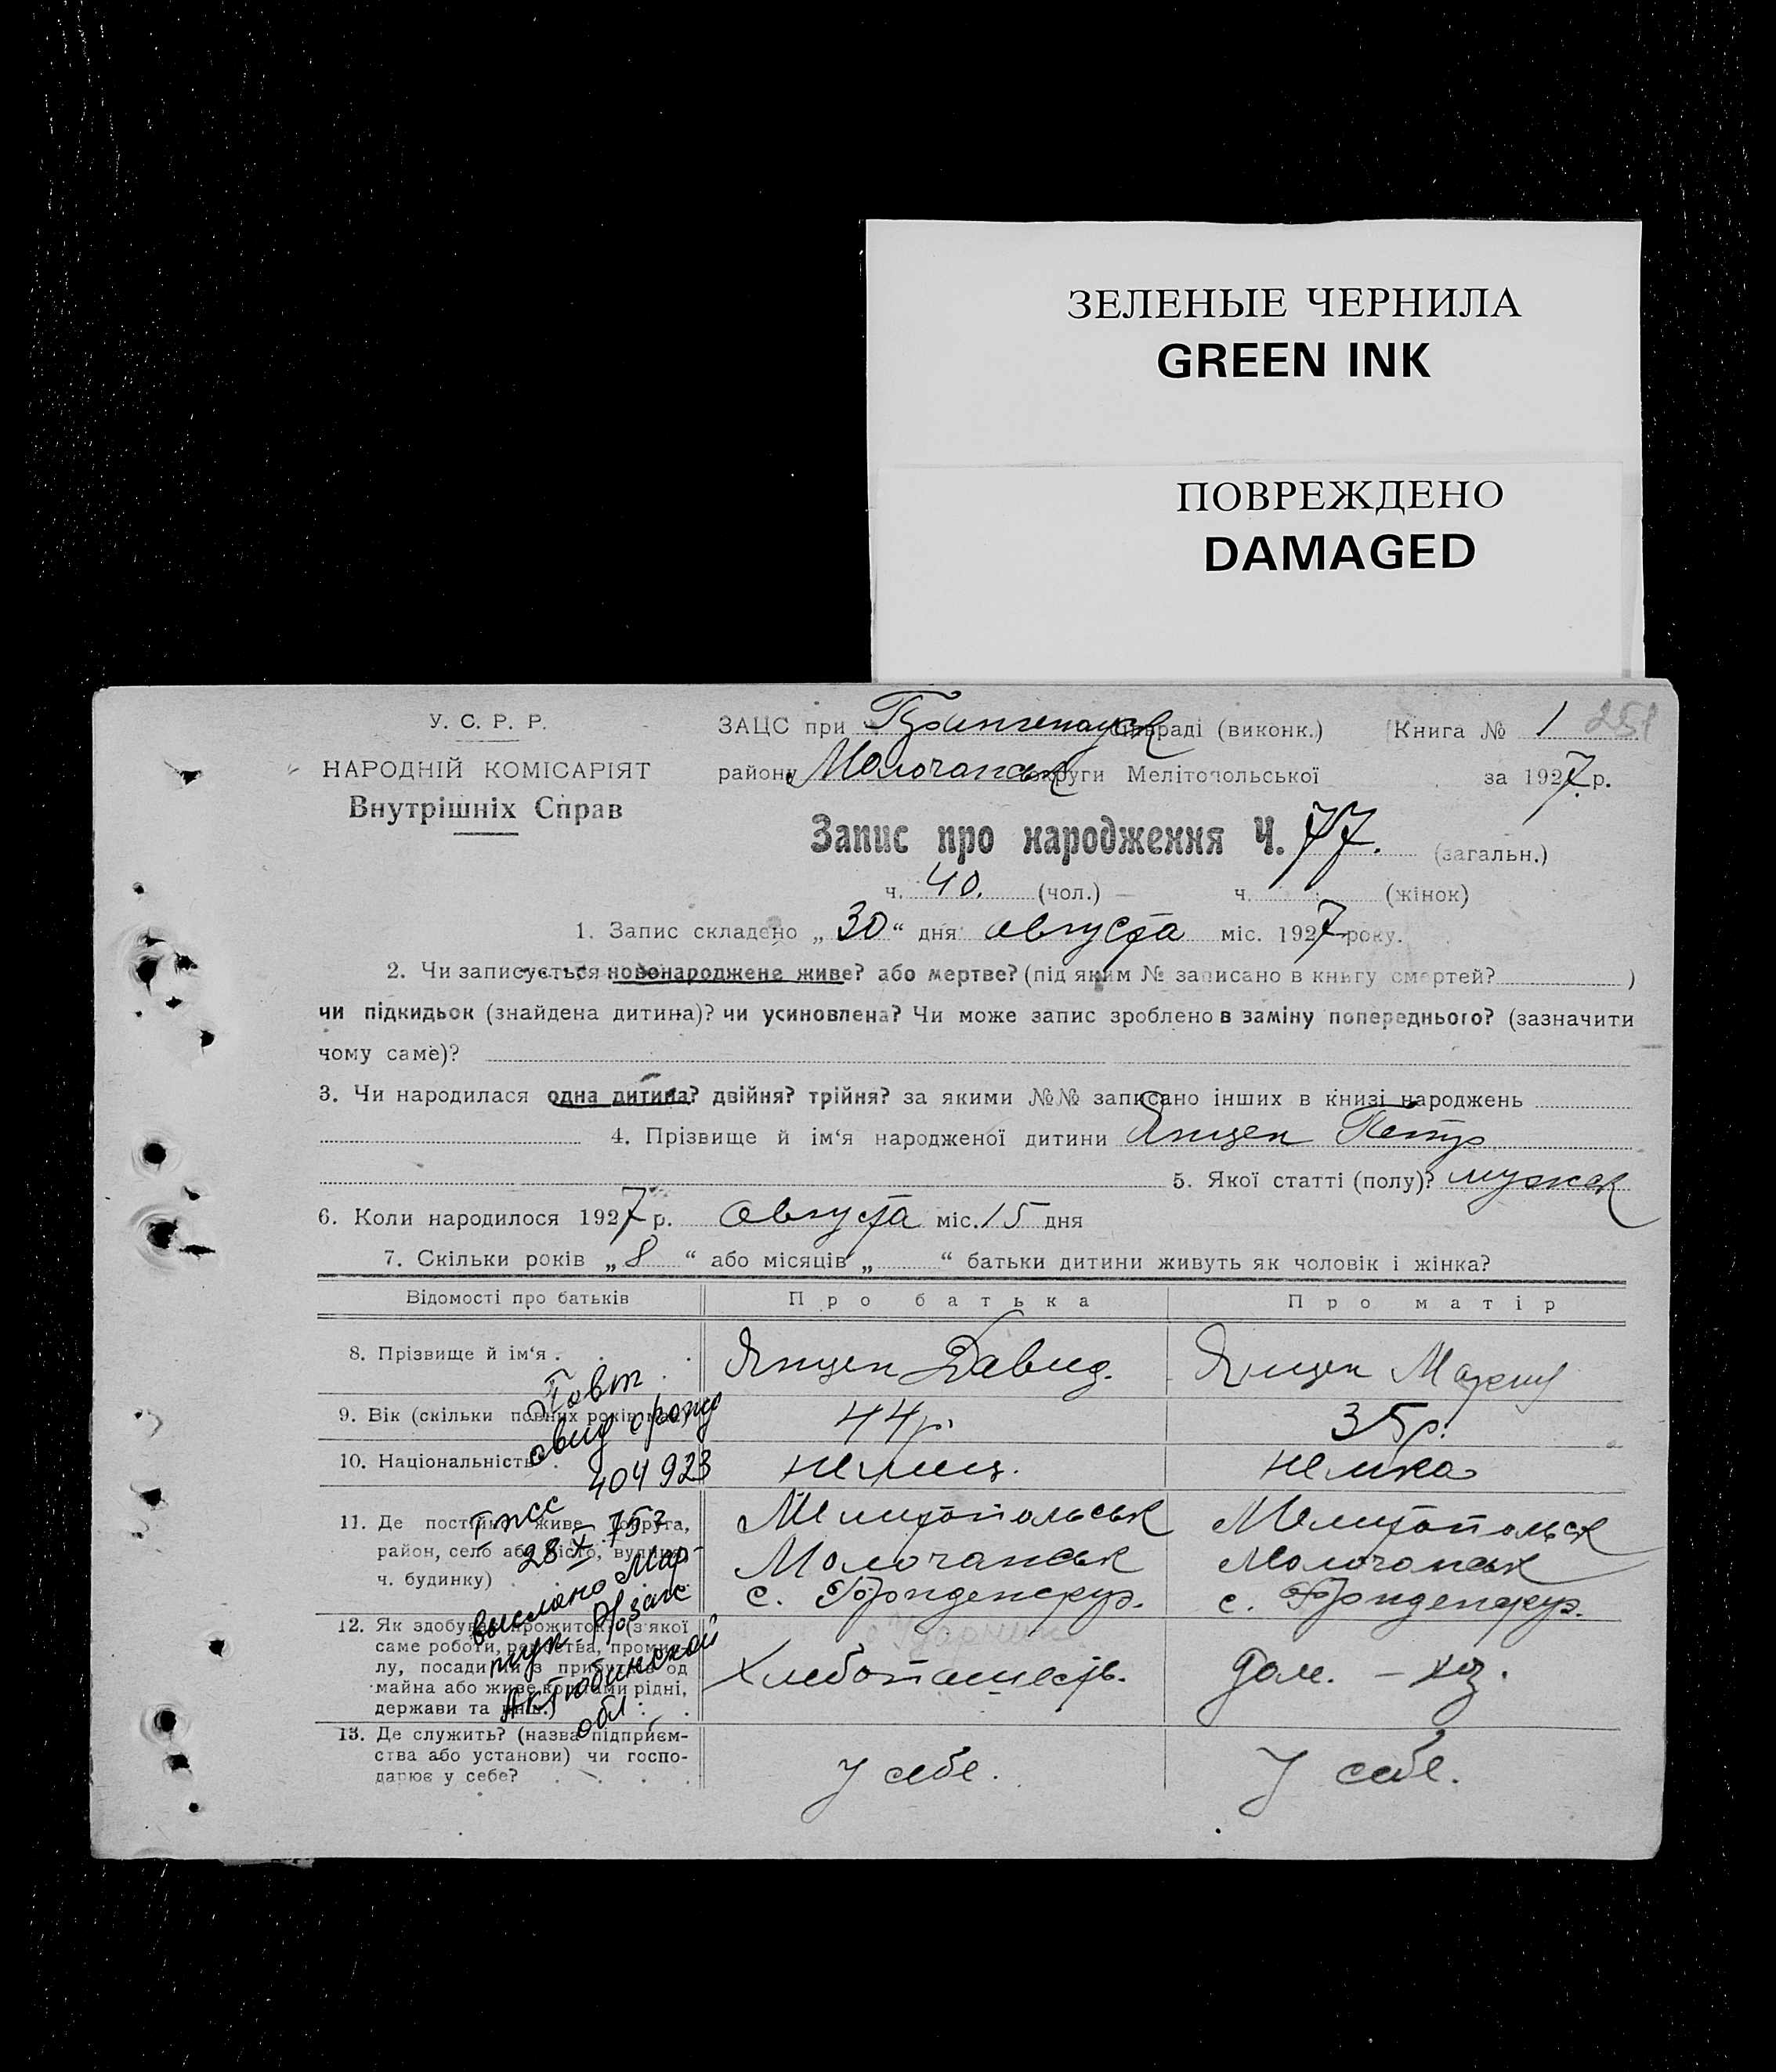 ЗЕЛЕНЫЕ ЧЕРНИЛА
GREEN INK
ПОВРЕЖДЕНО
DAMAGED
У. С. Р. Р.
НАРОДНІЙ КОМІСАРІЯТ
Внутрішніх Справ
ЗАЦС при сільраді (виконк.) Книга № 1 251
району Молочанськ округи Мелітопольської за 1927 р.
Запис про народження Ч. 77. (загальн.)
ч. 40. (чол.) — ч. (жінок)
1. Запис складено „ 30 “ дня августа міс. 1927 року.
2. Чи записується новонароджене живе? або мертве? (під яким № записано в книгу смертей? )
чи підкидьок (знайдена дитина)? чи усиновлена? Чи може запис зроблено в заміну попереднього? (зазначити
чому саме)?
3. Чи народилася одна дитина? двійня? трійня? за якими №№ записано інших в книзі народжень
4. Прізвище й ім‘я народженої дитини Янцен Петр
5. Якої статті (полу)? мужск
6. Коли народилося 1927 р. августа міс. 15 дня
7. Скільки років „ 8 “ або місяців „ “ батьки дитини живуть як чоловік і жінка?
Відомості про батьків Про батька Про матір
8. Прізвище й ім‘я . . . Янцен Давид. Янцен
Повт
9. Вік (скільки повних років має) 44 р. 35 р.
свид о рожд
10. Національність . немец. немка
404923
11. Де постійно живе (округа, Мелитопольськ Мелитопольск
28 X 75 г
район, село або місто, вулиця, Молочанськ Молочанськ
ч. будинку) . с. Фриденсруэ. с. Фриденсруэ.
выслано Мар-
тук Рзагс
Актюбинской
обл
12. Як здобуває прожиток (з якої
саме роботи, ремества, промис-
лу, посади чи з прибутків од Хлебопашеств. дом. – хоз.
майна або живе коштами рідні,
держави та инш.)
13. Де служить? (назва підприєм-
ства або установи) чи госпо- у себе. У себе.
дарює у себе? . . . .